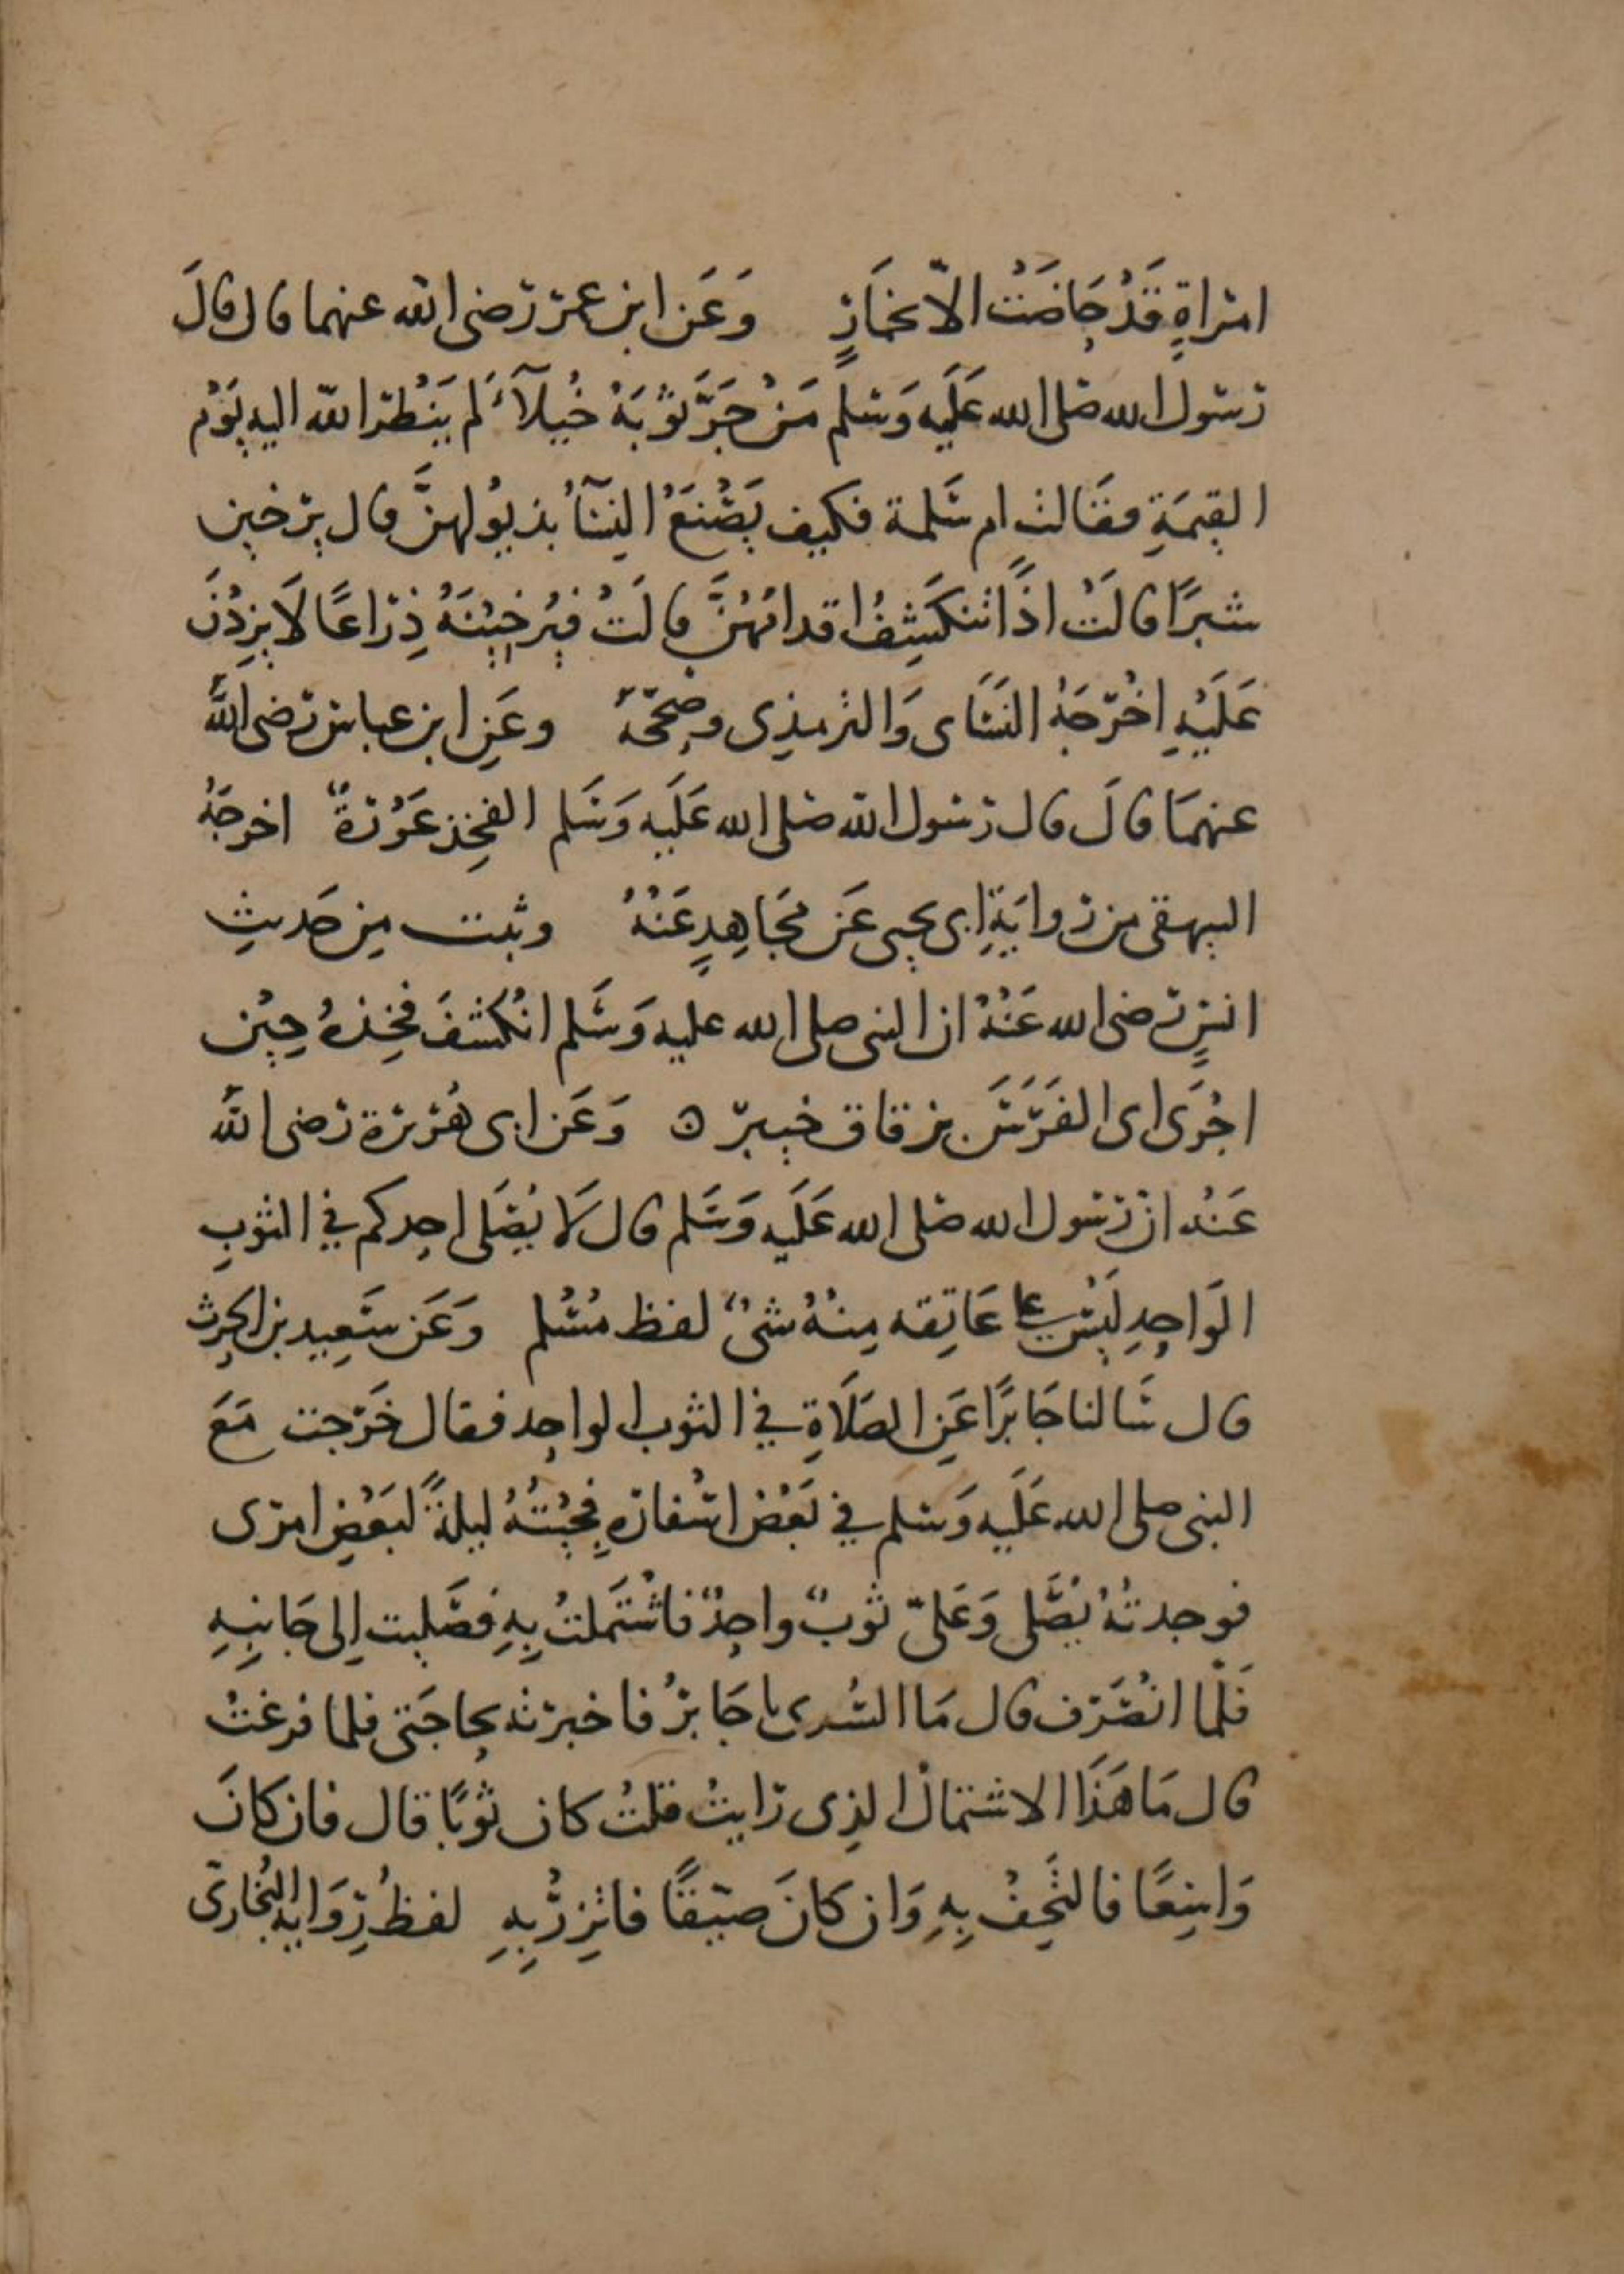 امراةٍ قَدْ حَاضَتْ الاّ بخمَارٍ وَعَن ابن عمر رضى الله عنهما قال قالَ
رسول الله صلى الله عَلَيه وَسلم مَنْ جَرَّ ثَوْبَهُ خُيلآءَ لم يَنْظر الله اليه يَوْم
القيمَةِ فقَالت ام سَلمة فكيف يَصْنَعُ النِسَآءُ بذيُولهنَّ قال يرخين
شبرًا قالَتْ اذًا تنكَشِفُ اقدامُهُنَّ قالَتْ فيُرخِيْنَهُ ذِرَاعًا لَا يزِدْنَ
عَلَيْهِ اخْرَجَهُ النسَاى وَالترمذِى وصحّحَهُ وعَنِ ابن عباس رضى اللهُ
عنهمَا قالَ قال رسول الله صلى الله عَلَيه وَسَلم الفخِذ عَوْرَةٌ اخرجَهُ
البيهقى من روايَةِ ابى يحيى عَن مجَاهِدٍ عَنْهُ وثبت مِن حَديثِ
انسٍ رضى الله عَنْهُ ان النبى صلى الله عليه وَسَلم انْكشفَ فخِذهُ حِيْن
اجْرَى اى الفَرَسَ بزقاق خيبر ه وَعَن ابى هُرَيرة رضى اللهُ
عَنْهُ ان رسول الله صلى الله عَلَيه وَسَلم قال لَا يُصَلى احدكم في الثوبِ
الوَاحِدِ لَيْسَ على عَاتِقه مِنْهُ شىْءٌ لفظ مُسْلم وَعَن سَعِيد بن الحرث
قال سَالنا جَابرًا عَنِ الصَلَاةِ في الثوب الواحِد فقال خَرَجت مَعَ
النبى صلى الله عَلَيه وَسلم في بَعْض اسْفارهِ فجِئْتُهُ ليلةً لبَعْضِ امرى
فوجدتُهُ يُصَّلى وَعَلىّ ثوبٌ واحِدٌ فاشْتَملتُ بِهِ فصَليت اِلى جَانِبِهِ
فَلّما انْصَرَف قال مَا السُرى يا جَابرُ فاخبرته بحاجَتى فلما فرغتُ
قال مَا هَذَا الاشتمالُ الذِى رَايتُ قلتُ كان ثوبًا قال فان كانَ
وَاسِعًا فالتَحِفْ بِهِ وَان كانَ ضيّقًا فاتزِرْ بِهِ لفظُ رِوَايه البُخارىّ